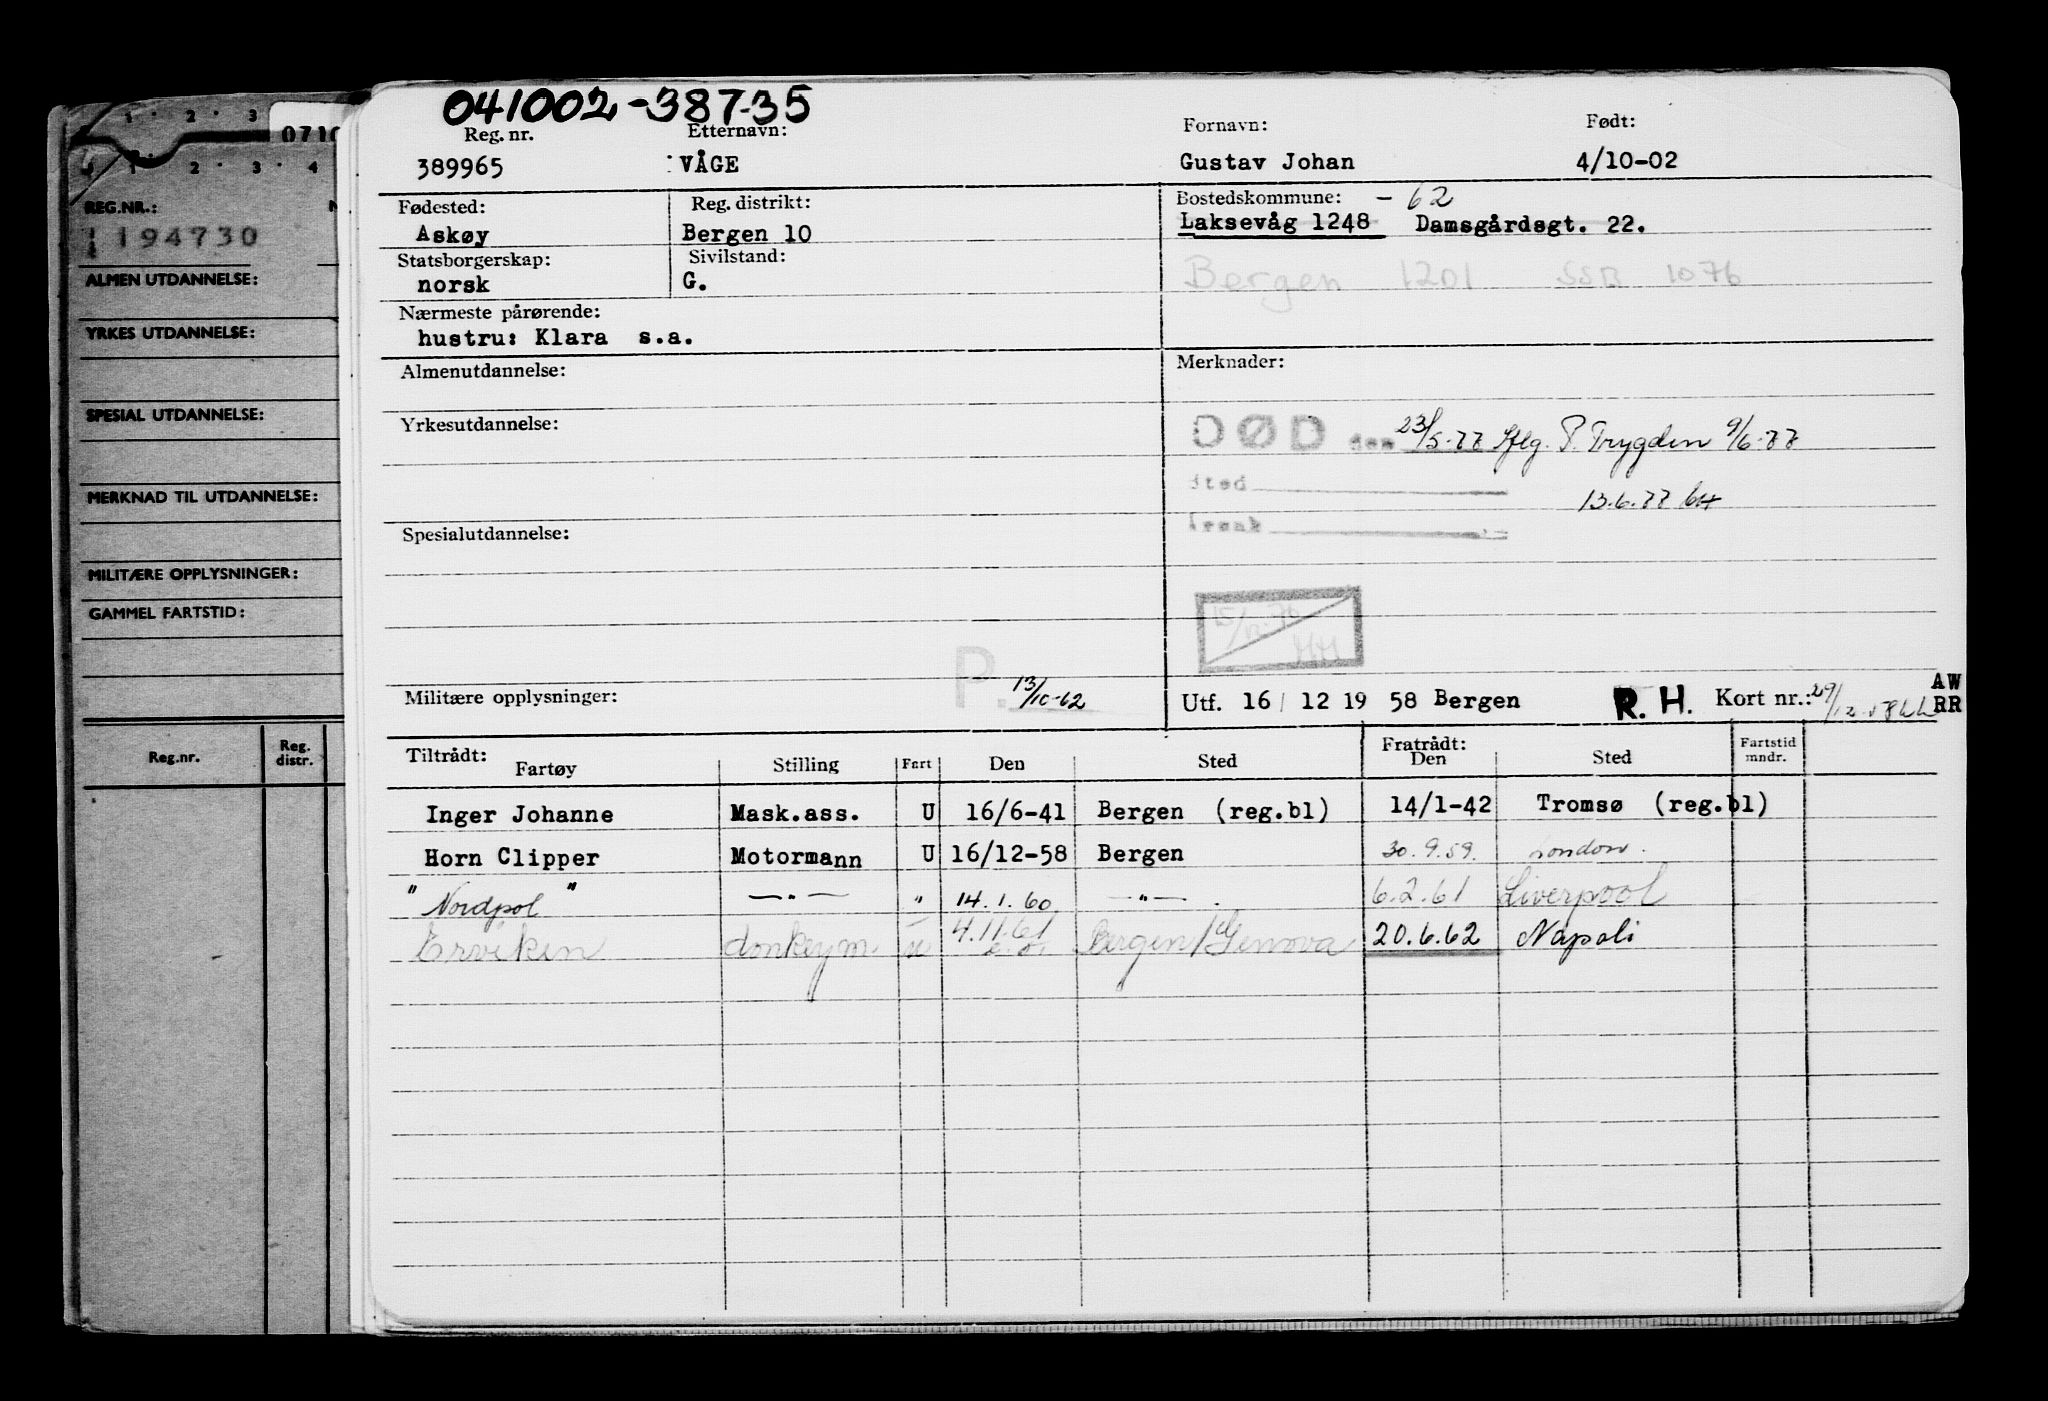 041002-38735
Reg. nr. Etternavn: Fornavn: Født:
389965 VÅGE Gustav Johan 4/10-02
Fødested: Reg. distrikt: Bostedskommune: -62
Askøy Bergen 10 Laksevåg 1248 Damsgårdsgt. 22.
Statsborgerskap: Sivilstand:
norsk G. Bergen 1201 SSB 1076
Nærmeste pårørende:
hustru: Klara s.a.
Almenutdannelse: Merknader:
Yrkesutdannelse: DØD den 23/5-77 iflg. P. Trygden 9/6-77
sted 13.6.77
årsak
Spesialutdannelse:
P. 13/10-62
Militære opplysninger: Utf. 16/ 12 19 58 Bergen R. H. Kort nr.: 29/12-58 LL AW
RR
Tiltrådt: Fratrådt:
Fartøy Stilling Fart Den Sted Den Sted Fartstid mndr.
Inger Johanne Mask.ass. U 16/6-41 Bergen (reg.bl) 14/1-42 Tromsø (reg.bl)
Horn Clipper Motormann U 16/12-58 Bergen 30.9.59. London.
"Nordpol" —"— " 14.1.60 —"— . 6.2.61 Liverpool
Erviken donkeym. u 4.11.61 Bergen/Genova 20.6.62 Napoli
1 2 3
0710
1 2 3 4
REG.NR.:
194730
ALMEN UTDANNELSE:
YRKES UTDANNELSE:
SPESIAL UTDANNELSE:
MERKNAD TIL UTDANNELSE:
MILITÆRE OPPLYSNINGER:
GAMMEL FARTSTID:
Reg.nr. Reg. distr.